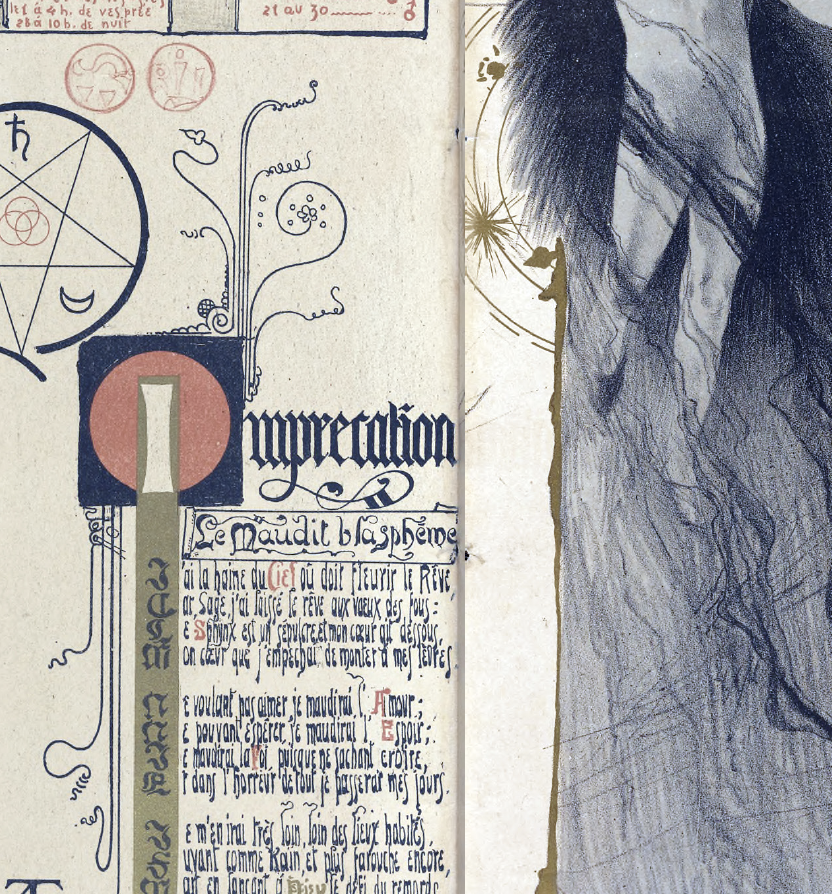 let à 4 h. de vesprée
28 à 10 h. de nuit
21 au 30
♂
♄
☾
Imprecation
Le Maudit blasphème
'ai la haine du Ciel où doit fleurir le Rêve,
ar, Sage, j'ai laissé le rêve aux vœux des fous :
e Sphynx est un sépulcre, et mon cœur gît dessous,
on cœur que j'empêchai de monter à mes lèvres.
e voulant pas aimer je maudirai l'Amour ;
e pouvant espérer je maudirai l'Espoir ;
e maudirai la Foi, puisque ne sachant croire,
t dans l'horreur de tout je passerai mes jours.
e m'en irai très loin, loin des lieux habités,
uyant comme Kaïn et plus farouche encore,
art en lançant à Dieu le défi du remords